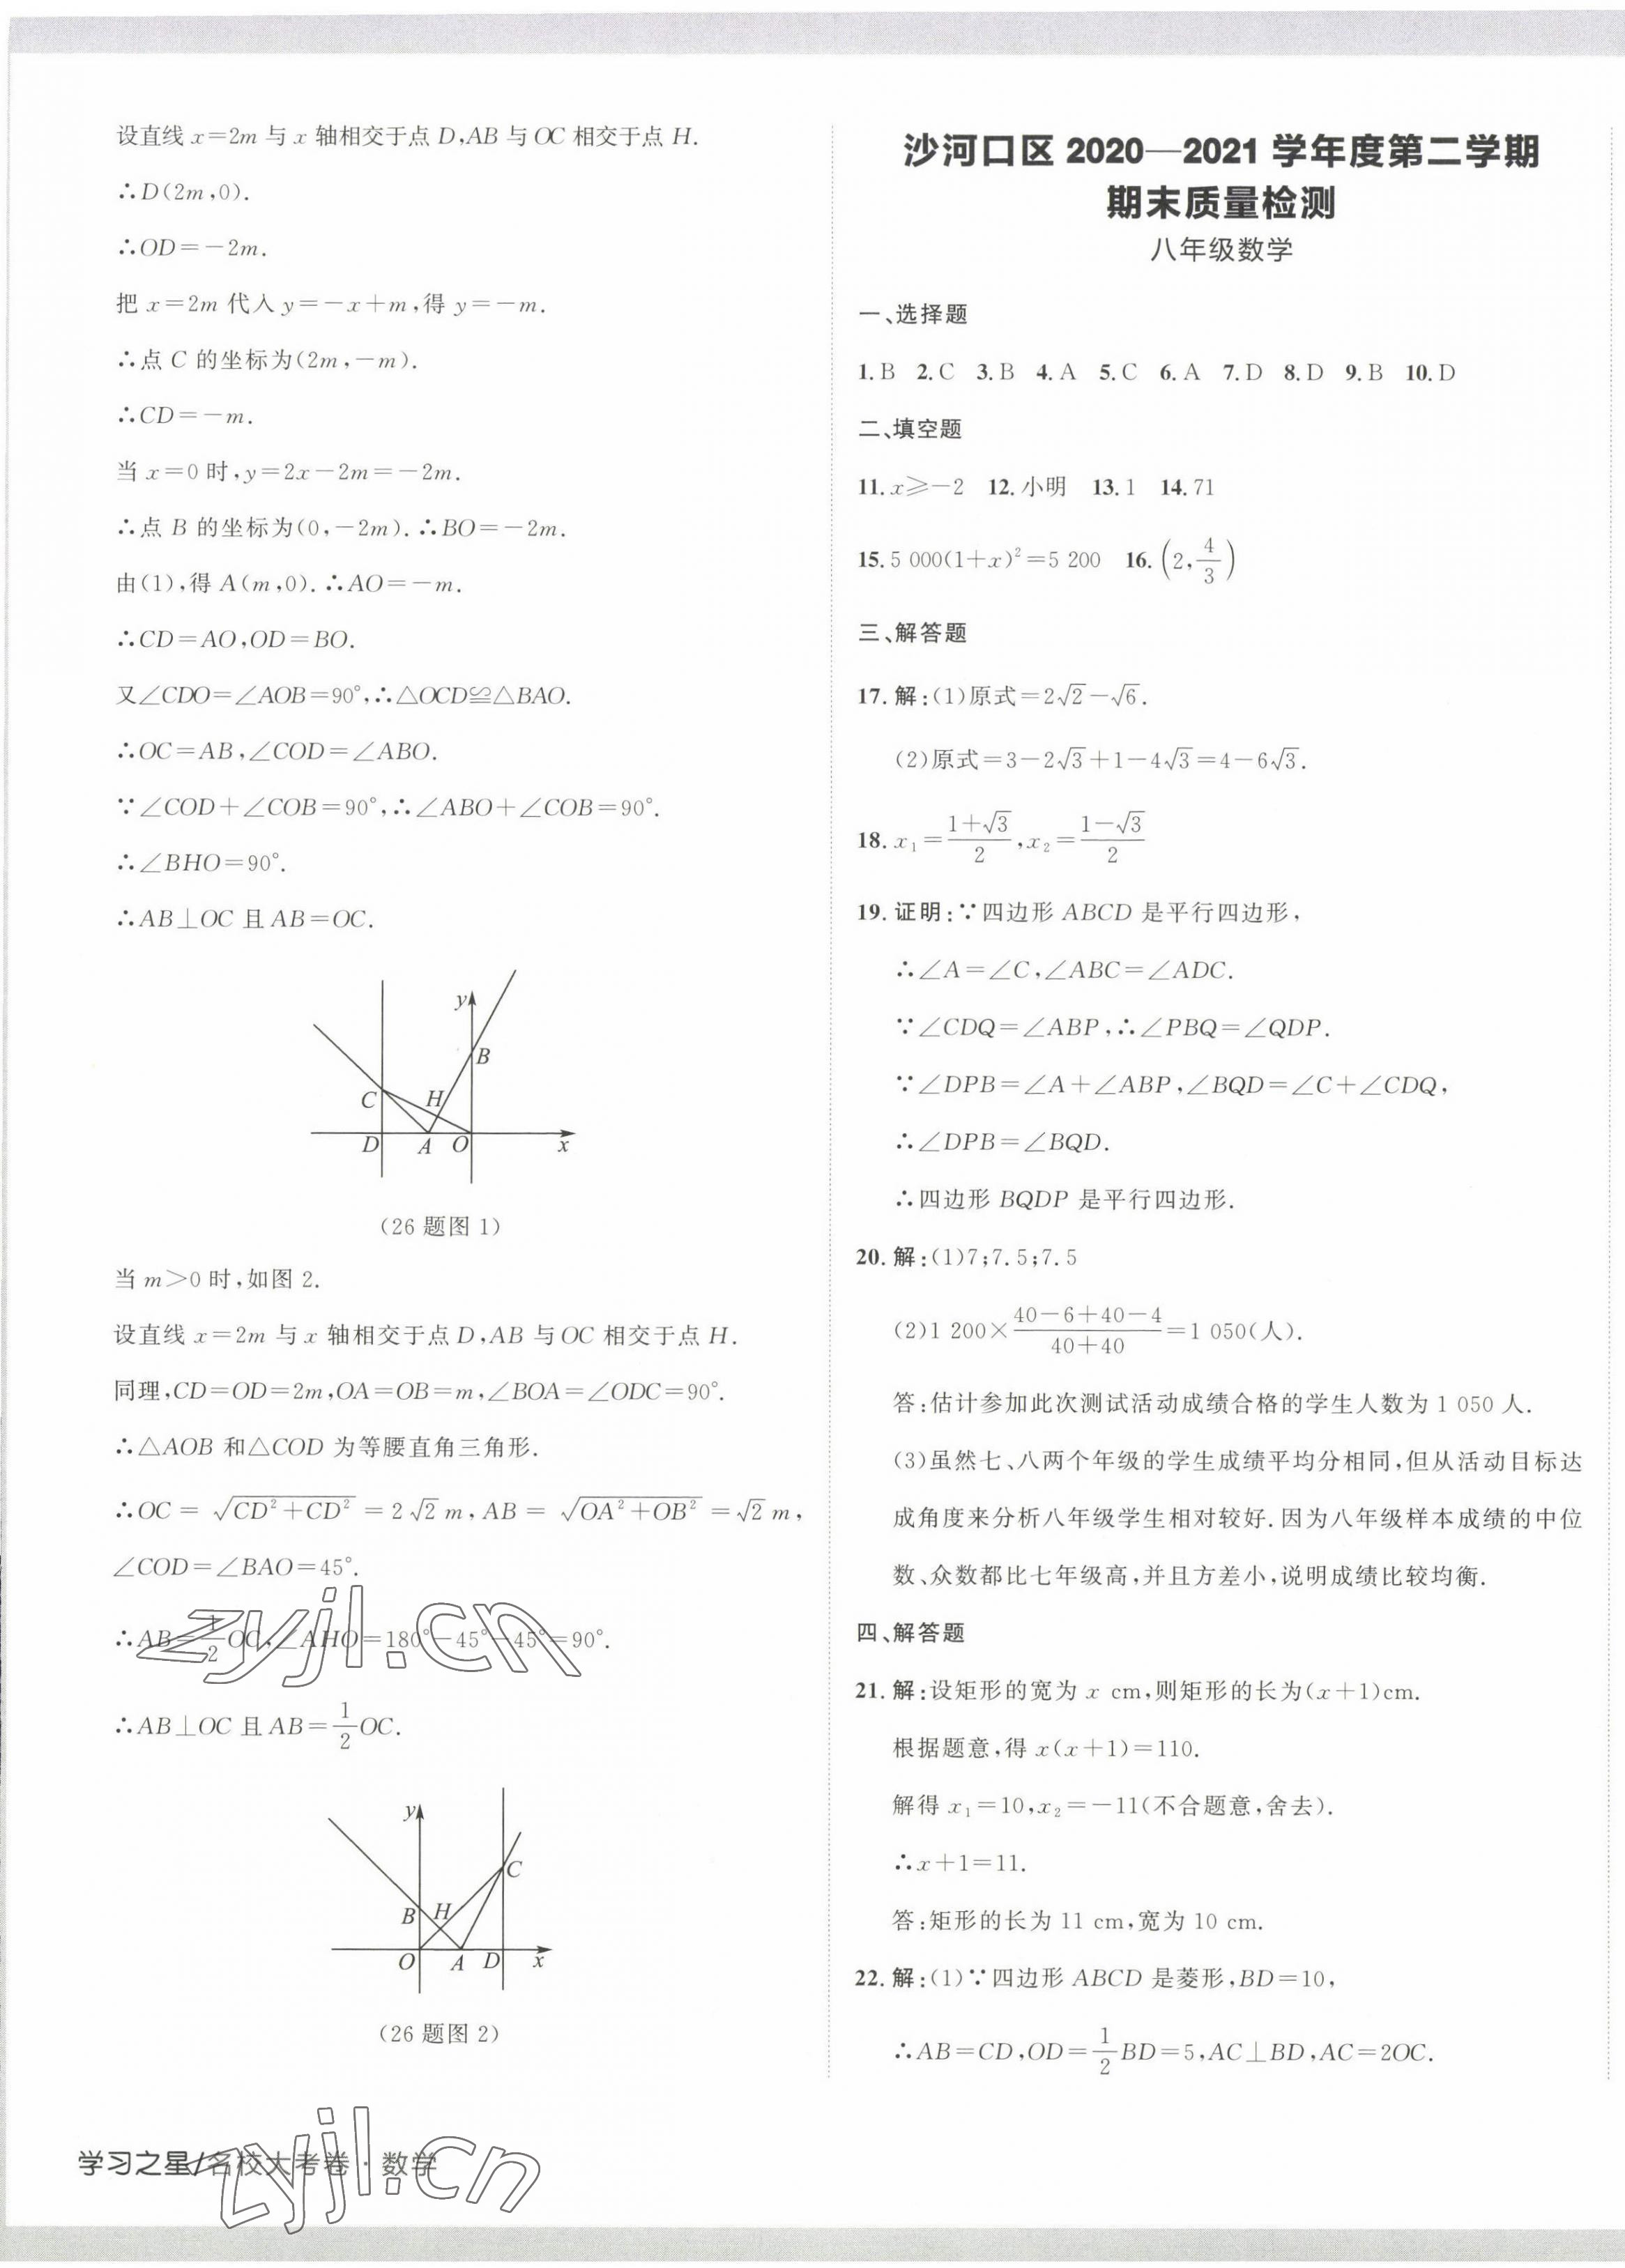 设直线 x=2m 与 x 轴相交于点 D,AB 与 OC 相交于点 H.
∴D(2m,0).
∴OD=-2m.
把 x=2m 代入 y=-x+m,得 y=-m.
∴点 C 的坐标为(2m,-m).
∴CD=-m.
当 x=0 时,y=2x-2m=-2m.
∴点 B 的坐标为(0,-2m).∴BO=-2m.
由(1),得 A(m,0).∴AO=-m.
∴CD=AO,OD=BO.
又∠CDO=∠AOB=90°,∴△OCD≌△BAO.
∴OC=AB,∠COD=∠ABO.
∵∠COD+∠COB=90°,∴∠ABO+∠COB=90°.
∴∠BHO=90°.
∴AB⊥OC 且 AB=OC.
y
B
C
H
D
A
O
x
(26 题图 1)
当 m>0 时,如图 2.
设直线 x=2m 与 x 轴相交于点 D,AB 与 OC 相交于点 H.
同理,CD=OD=2m,OA=OB=m,∠BOA=∠ODC=90°.
∴△AOB 和△COD 为等腰直角三角形.
∴OC=√(CD²+CD²)=2√2 m,AB=√(OA²+OB²)=√2 m,
∠COD=∠BAO=45°.
∴AB=1/2 OC,∠AHO=180°-45°-45°=90°.
∴AB⊥OC 且 AB=1/2 OC.
y
C
B
H
O
A
D
x
(26 题图 2)
学习之星/名校大考卷·数学
沙河口区 2020—2021 学年度第二学期
期末质量检测
八年级数学
一、选择题
1.B 2.C 3.B 4.A 5.C 6.A 7.D 8.D 9.B 10.D
二、填空题
11.x≥-2 12.小明 13.1 14.71
15.5 000(1+x)²=5 200 16.(2,4/3)
三、解答题
17.解:(1)原式=2√2-√6.
(2)原式=3-2√3+1-4√3=4-6√3.
18.x₁=(1+√3)/2,x₂=(1-√3)/2
19.证明:∵四边形 ABCD 是平行四边形,
∴∠A=∠C,∠ABC=∠ADC.
∵∠CDQ=∠ABP,∴∠PBQ=∠QDP.
∵∠DPB=∠A+∠ABP,∠BQD=∠C+∠CDQ,
∴∠DPB=∠BQD.
∴四边形 BQDP 是平行四边形.
20.解:(1)7;7.5;7.5
(2)1 200×(40-6+40-4)/(40+40)=1 050(人).
答:估计参加此次测试活动成绩合格的学生人数为 1 050 人.
(3)虽然七、八两个年级的学生成绩平均分相同,但从活动目标达
成角度来分析八年级学生相对较好.因为八年级样本成绩的中位
数、众数都比七年级高,并且方差小,说明成绩比较均衡.
四、解答题
21.解:设矩形的宽为 x cm,则矩形的长为(x+1)cm.
根据题意,得 x(x+1)=110.
解得 x₁=10,x₂=-11(不合题意,舍去).
∴x+1=11.
答:矩形的长为 11 cm,宽为 10 cm.
22.解:(1)∵四边形 ABCD 是菱形,BD=10,
∴AB=CD,OD=1/2 BD=5,AC⊥BD,AC=2OC.
zyjl.cn
zyjl.cn